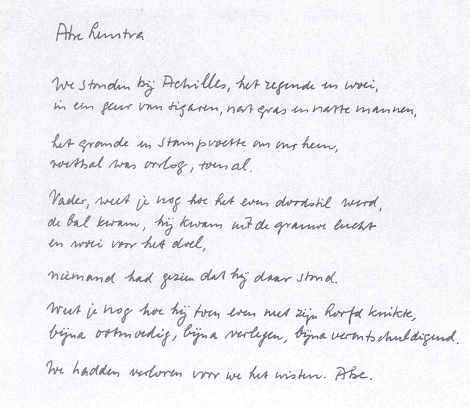 Abe Lenstra
We stonden bij Achilles, het regende en woei,
in een geur van sigaren, nat gras en natte mannen,
het gromde en stampvoette om ons heen,
voetbal was oorlog, toen al.
Vader, weet je nog hoe het even doodstil werd,
de bal kwam, hij kwam uit de grauwe lucht
en woei voor het doel,
niemand had gezien dat hij daar stond.
Weet je nog hoe hij toen even met zijn hoofd knikte,
bijna ootmoedig, bijna verlegen, bijna verontschuldigend.
We hadden verloren voor we het wisten. Abe.